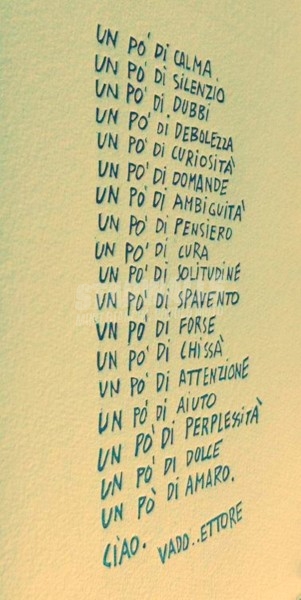 UN PO' DI CALMA.
UN PO' DI SILENZIO
UN PO' DI DUBBI
UN PO' DI DEBOLEZZA
UN PO' DI CURIOSITÀ
UN PO' DI DOMANDE
UN PO' DI AMBIGUITÀ
UN PO' DI PENSIERO
UN PO' DI CURA
UN PO' DI SOLITUDINE
UN PO' DI SPAVENTO
UN PO' DI FORSE
UN PO' DI CHISSÀ
UN PO' DI ATTENZIONE
UN PO' DI AIUTO
UN PO' DI PERPLESSITÀ
UN PO' DI DOLCE
UN PÒ DI AMARO.
CIAO. VADO..ETTORE